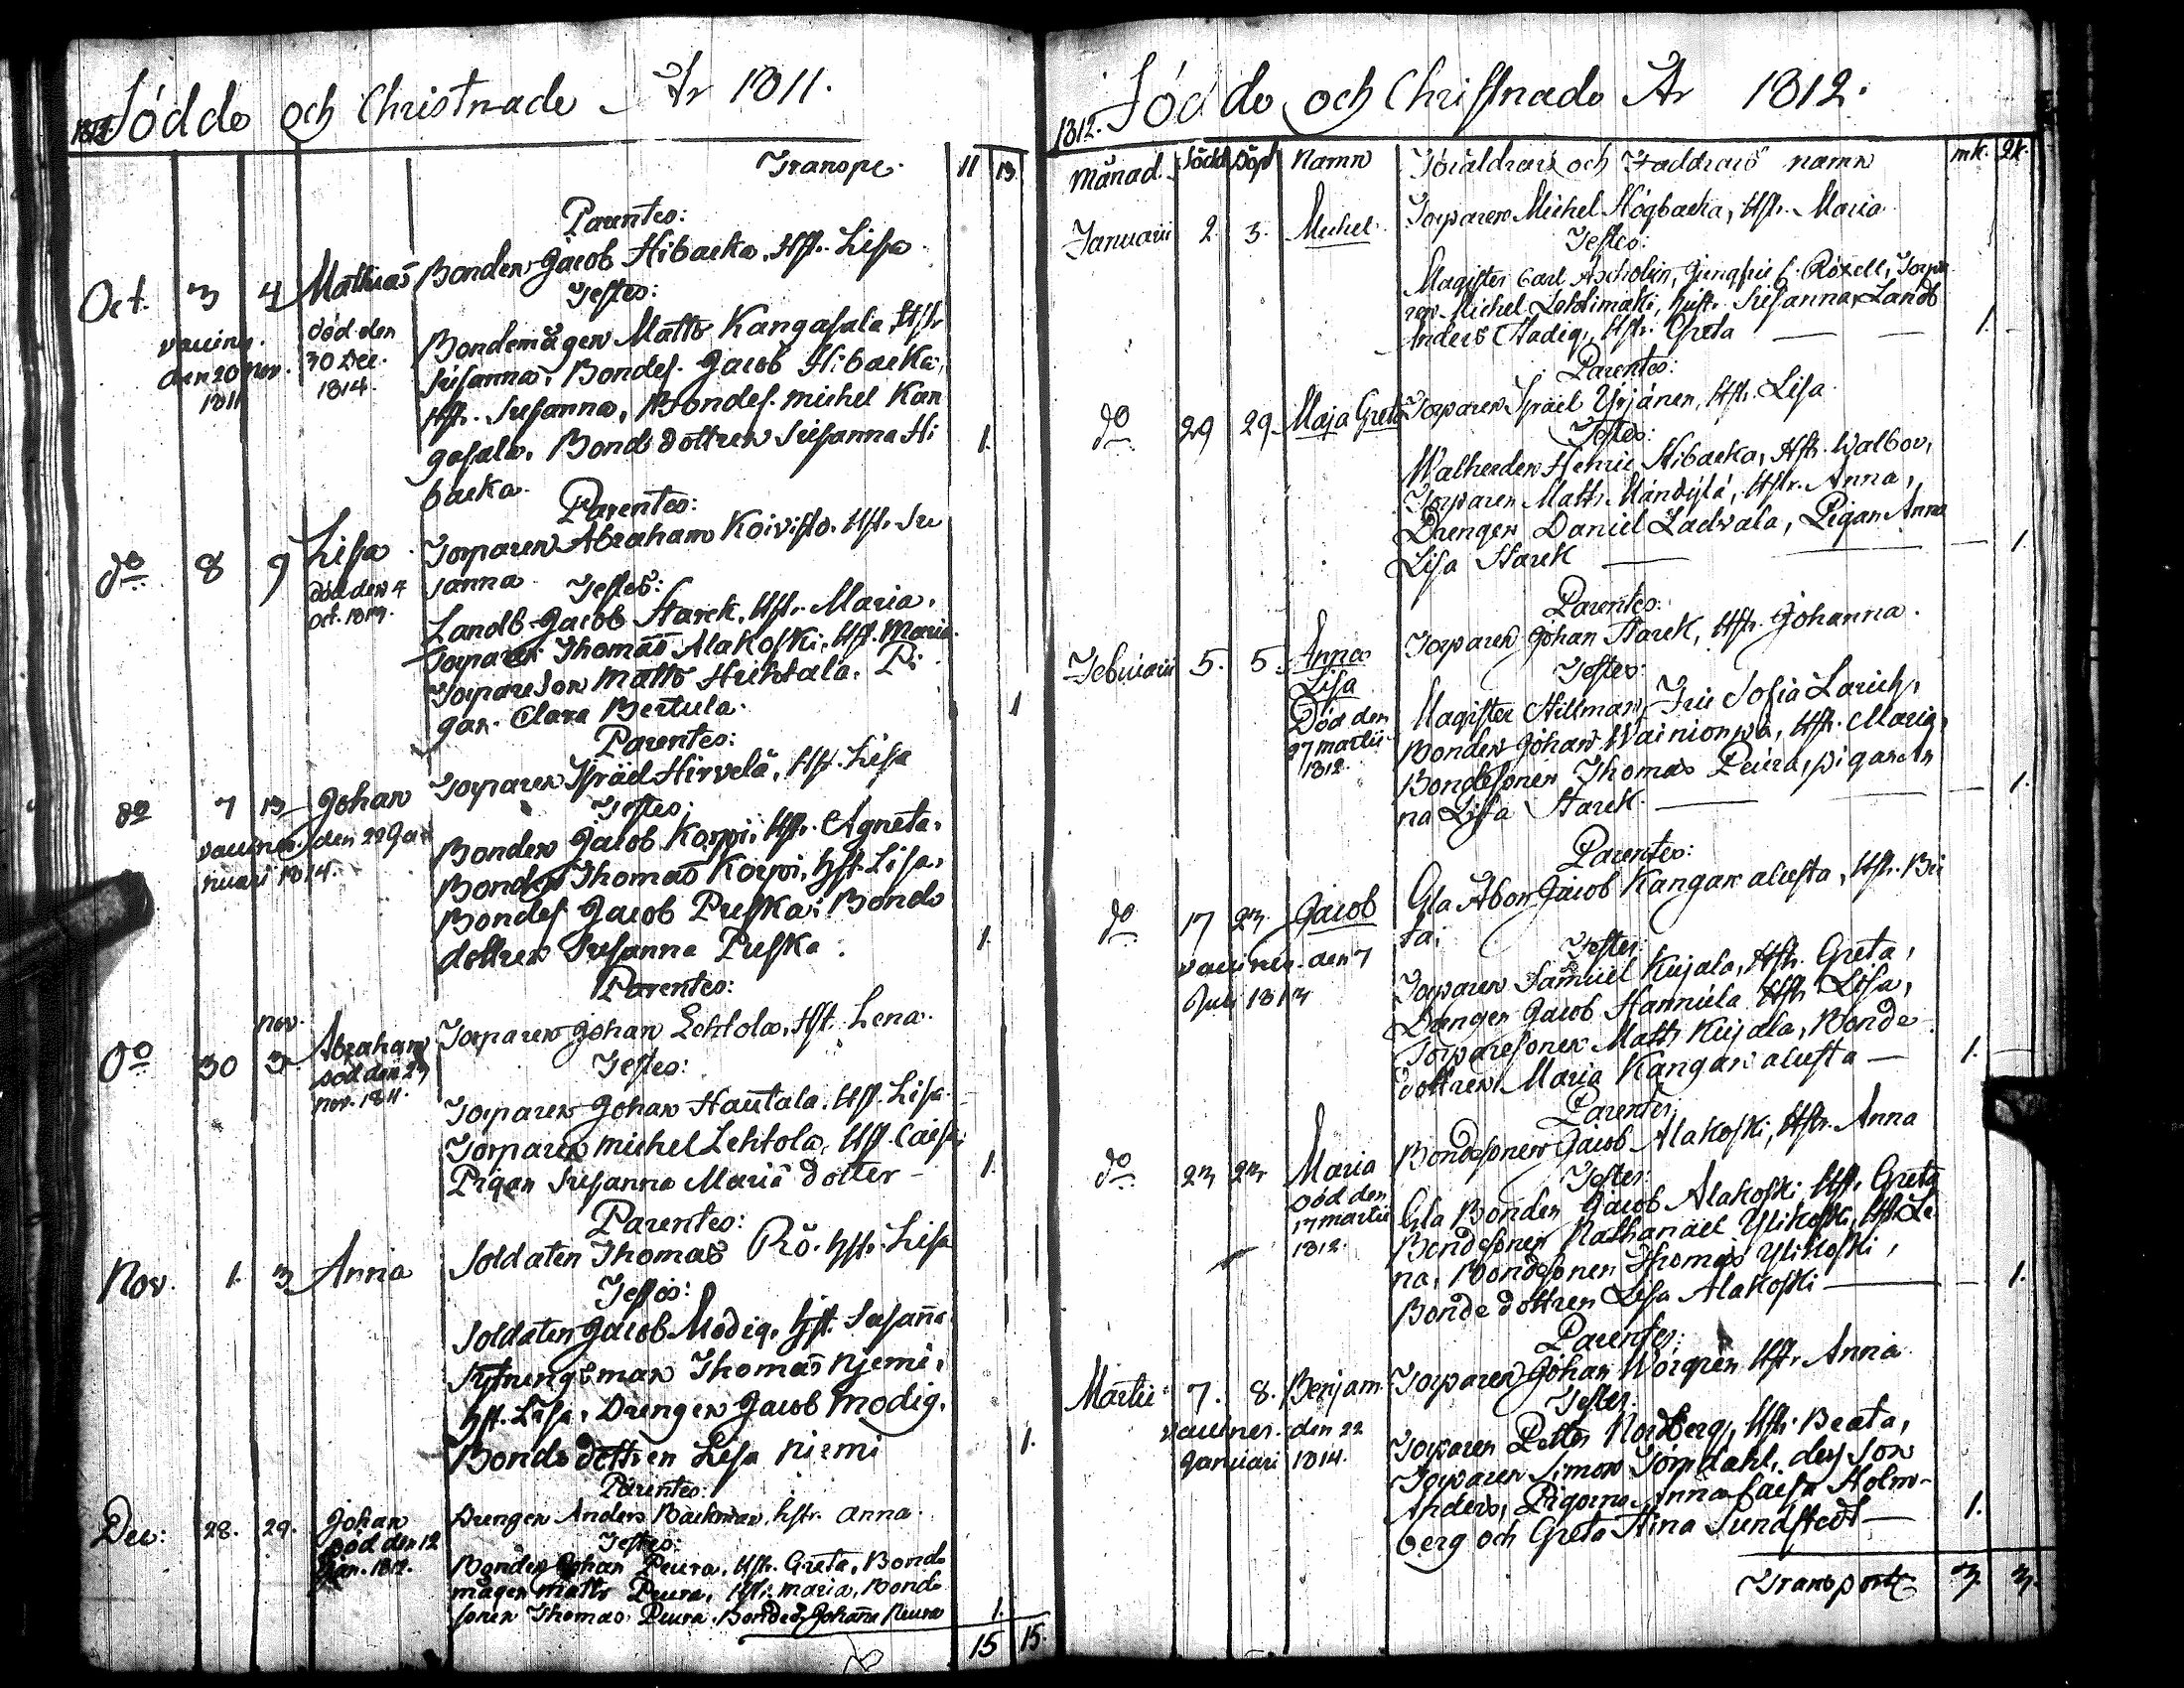 Födde och Christnade År 1811.
Transp. 11 13
Parentes:
Oct. 3 4 Mathias Bonden Jacob Hibacka, Hst. Lisa
Testes:
vaccine. den 20 Nov. 1811
död den 30 Dec. 1814.
Bondemågen Matts Kangasala, Hstr
Susanna, Bondes. Jacob Hibacka,
Hst. Susanna, Bondes. Michel Kan
gasala, Bonde dottren Susanna Hi 1.
backa.
Parentes:
do 8 9 Lisa Torparen Abraham Koivisto. Hst. Su
sanna
död den 4 Oct. 1813.
Testes:
Landb. Jacob Starck, Hst. Maria,
Torparen Thomas Alakoski, Hst. Maria
Torpareson Matts Huhtala. Pi
gan. Clara Bertula. 1
Parentes:
do 7 13 Johan Torparen Israel Hirvelä, Hst. Lisa
Testes:
vacciner. den 22 Ja
nuari 1814.
Bonden Jacob Korpi, Hst. Agneta.
Bonden Thomas Korpi, Hst. Lisa,
Bondes Jacob Puska, Bonde
dottren Susanna Puska. 1.
Parentes:
do 30 Nov. 3 Abraham Torparen Johan Lehtola, Hst. Lena.
död den 23 Nov. 1811.
Testes:
Torparen Johan Hautala, Hst. Lisa
Torparen Michel Lehtola, Hst. Caisa,
Pigan Susanna Mariä dotter - 1.
Parentes:
Nov. 1. 3 Anna Soldaten Thomas Rö. Hst. Lisa
Testes:
Soldaten Jacob Modig. Hst. Susanna
Thomas Njemi,
Hst. Lisa, Drengen Jacob Modig.
Bonde dottren Lisa Niemi 1.
Parentes:
Dec: 28. 29. Johan Drengen Anders Backman, hstr. Anna.
död den 12 Jan. 1812.
Testes:
Bonden Johan Peura, Hstr. Greta, Bonde
mågen Matts Peura, Hst. Maria, Bonde
sonen Thomas Peura. Bonded. Johanna Peura 1.
15 15.
1812. Födde och Christnade År 1812.
Månad. Född Döpt Namn Föräldrars och Faddrars namn mk. qk.
Januarii 2. 3. Michel. Torparen Michel Högbacka, Hstr. Maria
Testes:
Magister Carl Ascholin, Jungfru C. Roxell, Torpa
ren Michel Lehtimäki, hustr. Susanna, Landb
Anders Stadig, Hstr. Greta 1.
Parentes:
do 29 29. Maja Greta Torparen Israel Yrjänen, Hstr. Lisa
Testes:
Henric Hibacka, Hstr. Walbor,
Torparen Matts Mändylä, Hstr. Anna,
Drengen Daniel Ladvala, Pigan Anna
Lisa Starck 1.
Parentes:
Februarii 5. 5. Anna Lisa Torparen Johan Starck, Hstr. Johanna.
Död den 27 martii 1812.
Testes:
Magister Hillman, Fru Sofia
Bonden Johan Wainionpä, Hstr. Maria,
Bondesonen Thomas Peura, pigan An
na Lisa Starck. 1.
Parentes:
do 17 23. Jacob Gla Abon Jacob Kangan alusta, Hstr. Bri
ta.
vacciner. den 7 Juli 1813
Testes:
Torparen Samuel Kujala, Hstr. Greta,
Drengen Jacob Hannula Hstr. Lisa,
Torparesonen Matts Kujala, Bonde
dottren Maria Kangan alusta 1.
Parentes:
do 23 23 Maria Bondesonen Jacob Alakoski, Hstr. Anna
död den 17 martii 1812.
Testes:
Gla Bonden Jacob Alakoski, Hst. Greta
Bondesonen Nathanael Ylikoski, Hst. Le
na, Bondesonen Thomas Ylikoski,
Bonde dottren Lisa Alakoski 1.
Parentes:
Martii 7. 8. Benjam. Torparen Johan Worgren Hstr. Anna
Testes.
vacciner. den 22
Januari 1814.
Torparen Petter Nordberg, Hstr. Beata,
Torparen Simon Törndahl, des Son
Anders, Pigorna Anna Caisa Holm-
berg och Greta Stina Sundstedt 1.
Transport 3. 3.